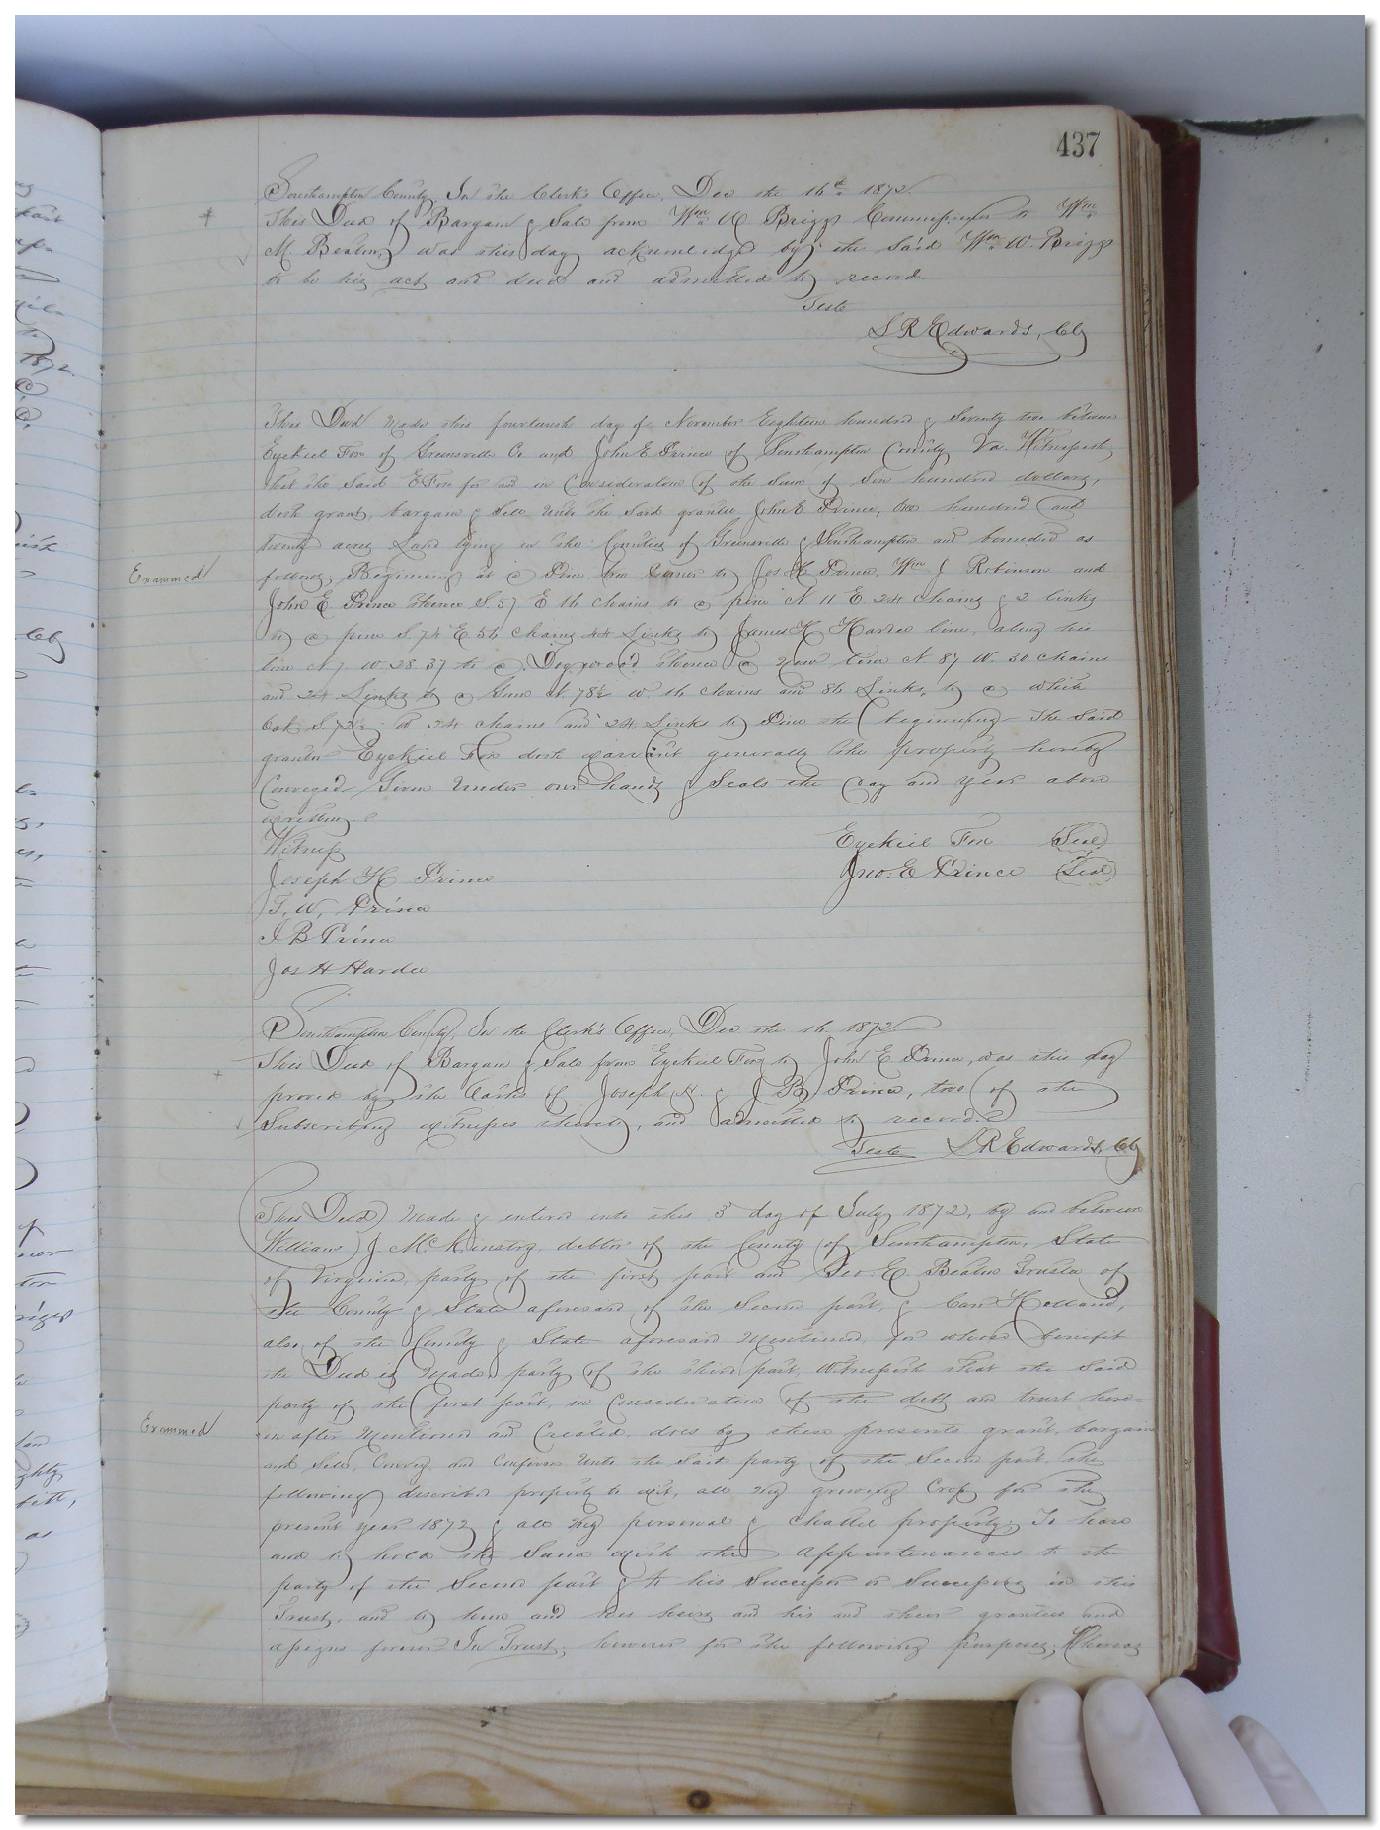 437
Southampton County, In the Clerk's Office, Dec the 16th 1872.
This Deed of Bargain & Sale from Wm W Briggs Commissioner to Wm
M. Beaton, was this day acknowledged by the said Wm W. Briggs
to be his act and deed and admitted to record
Teste
L R Edwards, Clk
This Deed Made this fourteenth day of November Eighteen hundred & Seventy two between
Ezekiel Fox of Greensville Co and John E Prince of Southampton County Va Witnesseth,
that the said E Fox for and in Consideration of the Sum of Six hundred dollars,
doth grant, bargain & Sell unto the said grantee John E Prince, two hundred and
twenty acres Land lying in the Counties of Greensville & Southampton and bounded as
Examined
follows, Beginning at a Pine tree Corner to Jos H Prince, Wm J Robinson and
John E Prince thence S. 57 E 16 chains to a pine N 11 E 24 chains & 2 links
to a pine S 74 E 56 chains 44 Links to James H Hardee line, along his
line N 7 W. 28.37 to a Dogwood thence a new line N. 87 W. 30 chains
and 24 Links to a Gum N. 78½ W. 16 chains and 86 Links, to a white
Oak S 72½ W 24 chains and 24 Links to Pine the beginning. The Said
grantor Ezekiel Fox doth warrant generally the property hereby
Conveyed. Given under our hands & Seals the day and year above
written
Witness
Ezekiel Fox (Seal)
Joseph H Prince
Jno. E Prince (Seal)
T. W. Prince
J B Prince
Jos H Hardee
Southampton County, In the Clerk's Office, Dec the 16 1872
This Deed of Bargain & Sale from Ezekiel Fox to John E Prince, was this day
proved by the Oaths of Joseph H. & J B Prince, two of the
Subscribing witnesses thereto, and admitted to record.
Teste L R Edwards, Clk
This Deed Made & entered into this 3 day of July 1872, by and between
William J McKinstry debtor of the County of Southampton, State
of Virginia, party of the first part and Geo. E. Beaton Trustee of
the County & State aforesaid of the Second part, & Holland,
also of the County & State aforesaid Mentioned, for whose benefit
the Deed is Made party of the third part, Witnesseth that the said
party of the first part, in Consideration of the debt and trust here-
Examined
in after Mentioned and Created, does by these presents grant, bargain
and Sell, Convey and Confirm unto the said party of the Second part, the
following described property to wit, all my growing Crop for the
present year 1872 & all my personal & chattel property, To have
and to hold the Same with the appurtenances to the
party of the Second part & to his Successor or Successors in this
Trust, and to him and his heirs and his and their grantees and
assigns forever In Trust, however for the following purposes, Whereas